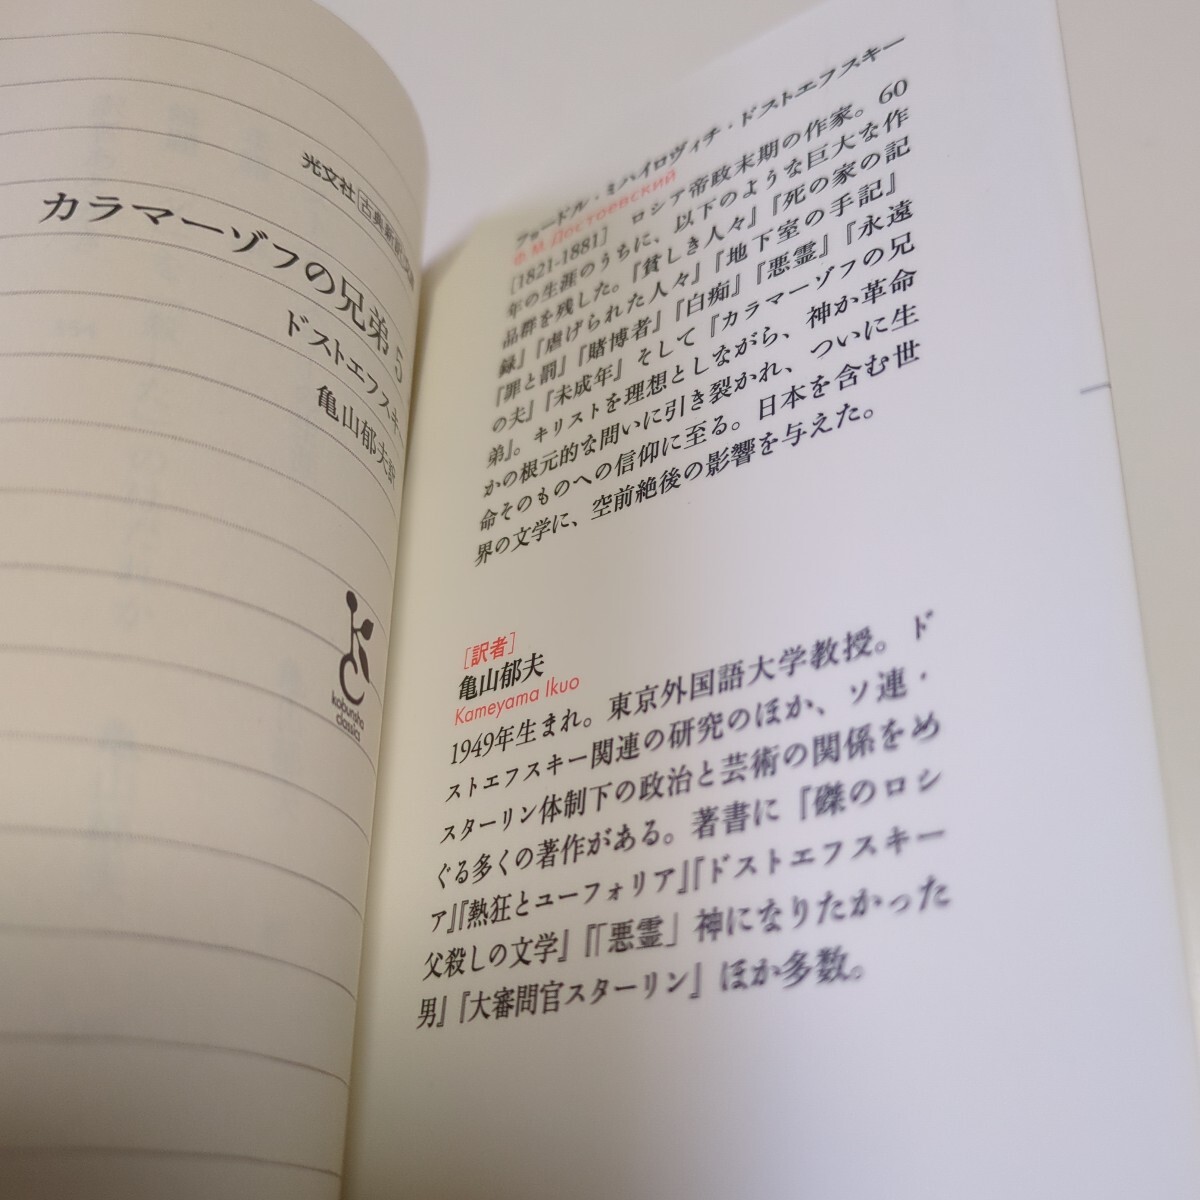 光文社[古典新訳文庫]
カラマーゾフの兄弟 5
ドストエフスキー
亀山郁夫訳
kobunsha
classics
フョードル・ミハイロヴィチ・ドストエフスキー
Ф.М.Достоевский
[1821-1881] ロシア帝政末期の作家。60
年の生涯のうちに、以下のような巨大な作
品群を残した。『貧しき人々』『死の家の記
録』『虐げられた人々』『地下室の手記』
『罪と罰』『賭博者』『白痴』『悪霊』『永遠
の夫』『未成年』そして『カラマーゾフの兄
弟』。キリストを理想としながら、神か革命
かの根元的な問いに引き裂かれ、ついに生
命そのものへの信仰に至る。日本を含む世
界の文学に、空前絶後の影響を与えた。
[訳者]
亀山郁夫
Kameyama Ikuo
1949年生まれ。東京外国語大学教授。ド
ストエフスキー関連の研究のほか、ソ連・
スターリン体制下の政治と芸術の関係をめ
ぐる多くの著作がある。著書に『磔のロシ
ア』『熱狂とユーフォリア』『ドストエフスキー
父殺しの文学』『「悪霊」神になりたかった
男』『大審問官スターリン』ほか多数。